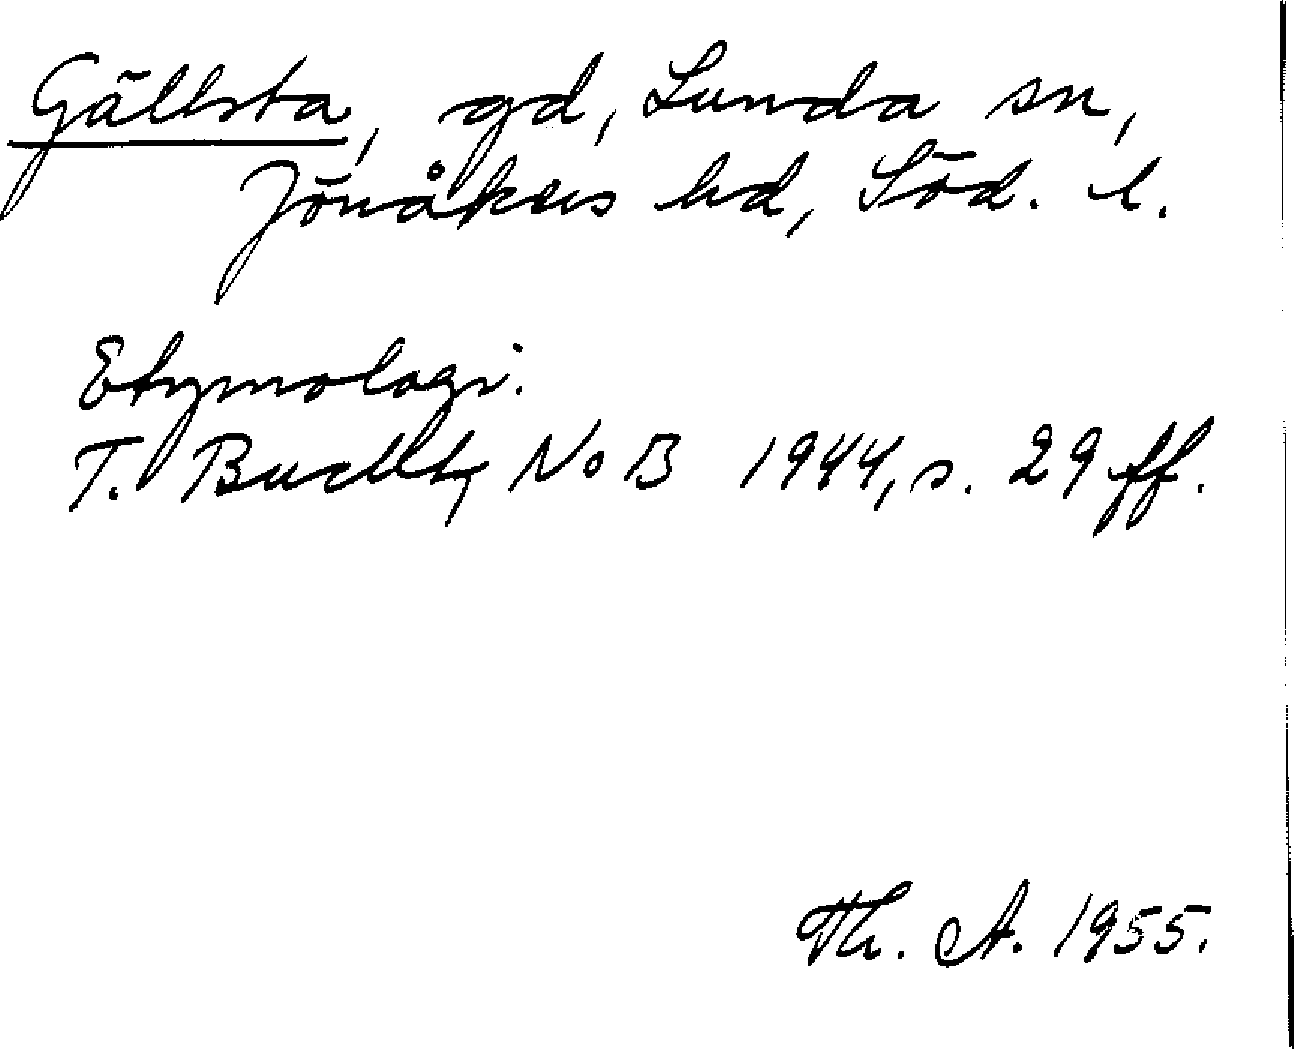 Gällsta, gd, Lunda sn,
Jönåkers hd, Söd. l.
Etymologi.
T. Bucht, NoB 1944, s. 29 ff.
Th. A. 1955.